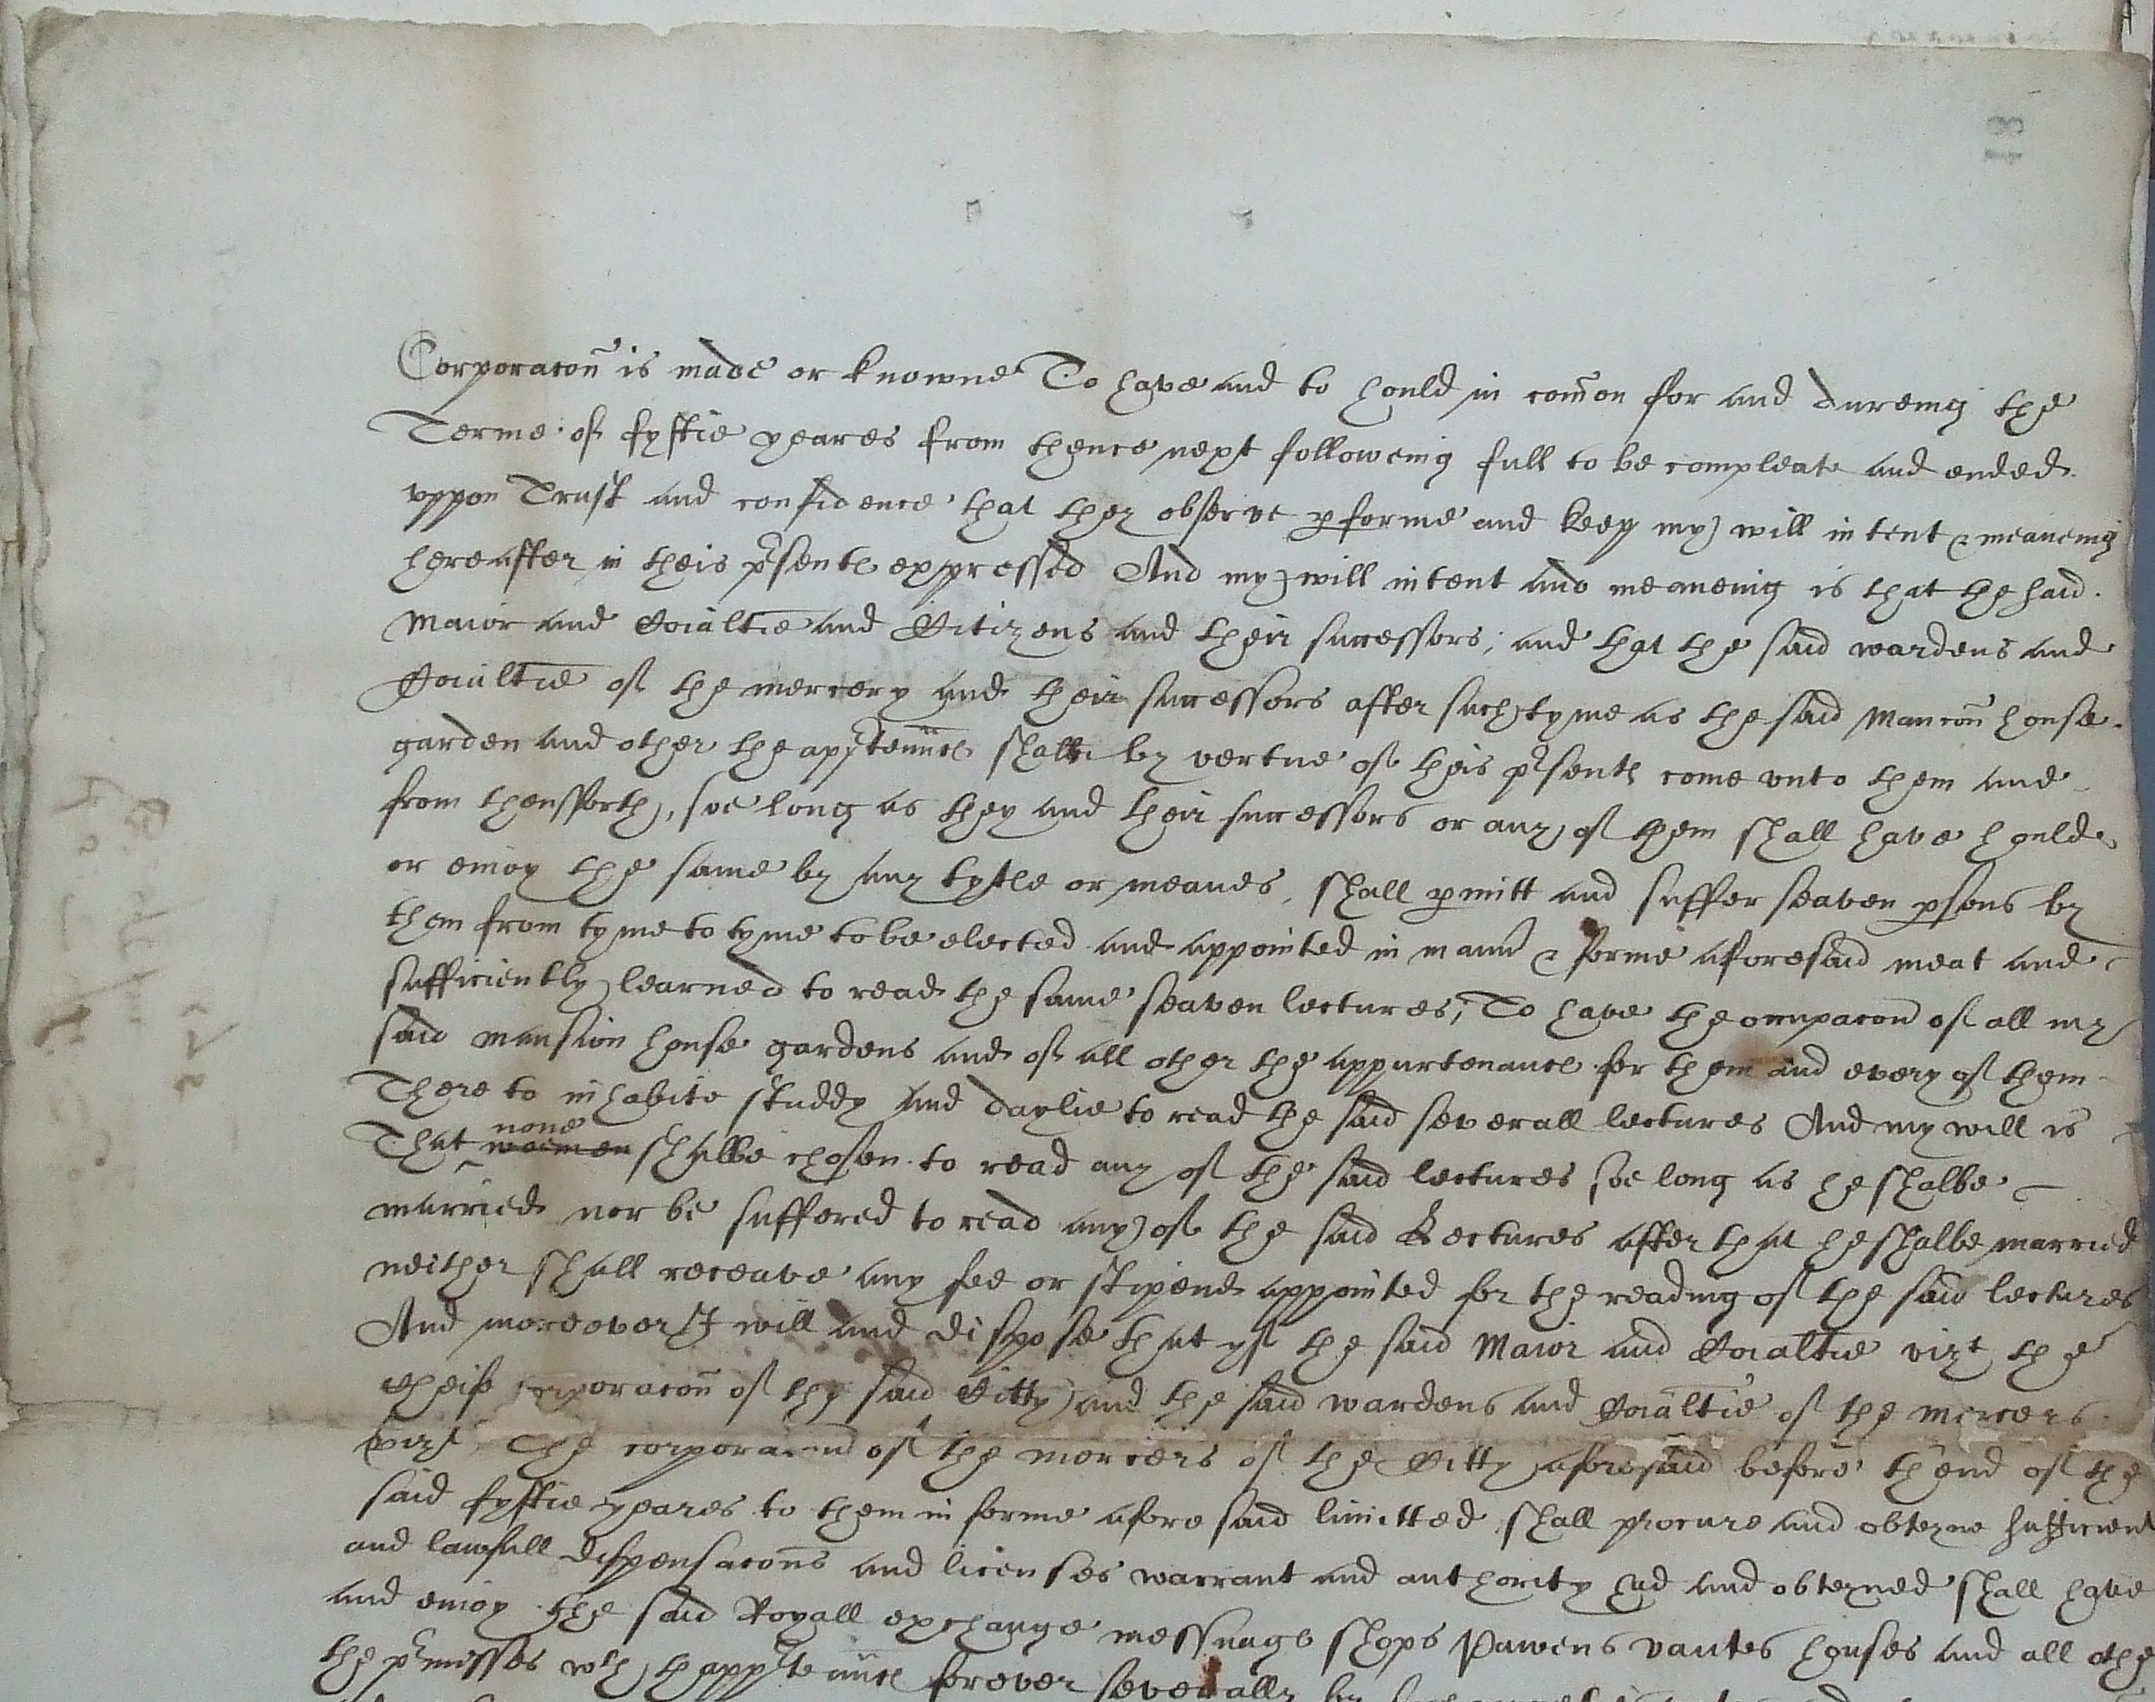 18
Corporacõn is made or knowne To have and to hould in com̃on for and dureing the
Terme of fyftie yeares from thence next following full to be compleate and ended
vppon Trust and confidence that they observe pforme and keep my will intent & meaneing
hereafter in theis pͬsentꝭ expressed And my will intent and meaneing is that the said
Maior and Coĩaltie and Cittizens and their successors, and that the said wardens and
Coĩaltie of the mercery and their successors after such tyme as the said Mancõn house
garden and other the appͬtenñcꝭ shalbe by vertue of theis pͬsentꝭ come vnto them and
from thensforth, soe long as they and their successors or any of them shall have hould
or enioy the same by any tytle or meanes, shall pmitt and suffer seaven psons by
them from tyme to tyme to be elected and appointed in mann̉ & forme aforesaid meat and
sufficiently learned to read the same seaven lectures, To have the occupacõn of all my
said mansion house gardens and of all other the appurtenancꝭ for them and every of them
There to inhabite studdy and daylie to read the said severall lectures And my will is
That woemen none shalbe chosen to read any of the said lectures soe long as he shalbe
married nor be suffered to read any of the said Lectures after that he shalbe married
neither shall receave any fee or stipend appointed for the reading of the said lectures
And moreover I will and dispose that yf the said Maior and Coĩaltie vizt the
cheife corporacõn of the said Citty and the said wardens and Coĩaltie of the mercers
vizt The corporacõn of the mercers of the Citty aforesaid before th'end of the
said fyftie yeares to them in forme aforesaid limitted shall procure and obteyne sufficient
and lawfull dispensacõns and licenses warrant and authority had and obteyned shall have
and enioy the said Royall exchange messuagꝭ shops Pawens vautes houses and all othe
the pͬmisses wth thappͬtenñcꝭ forever severally by